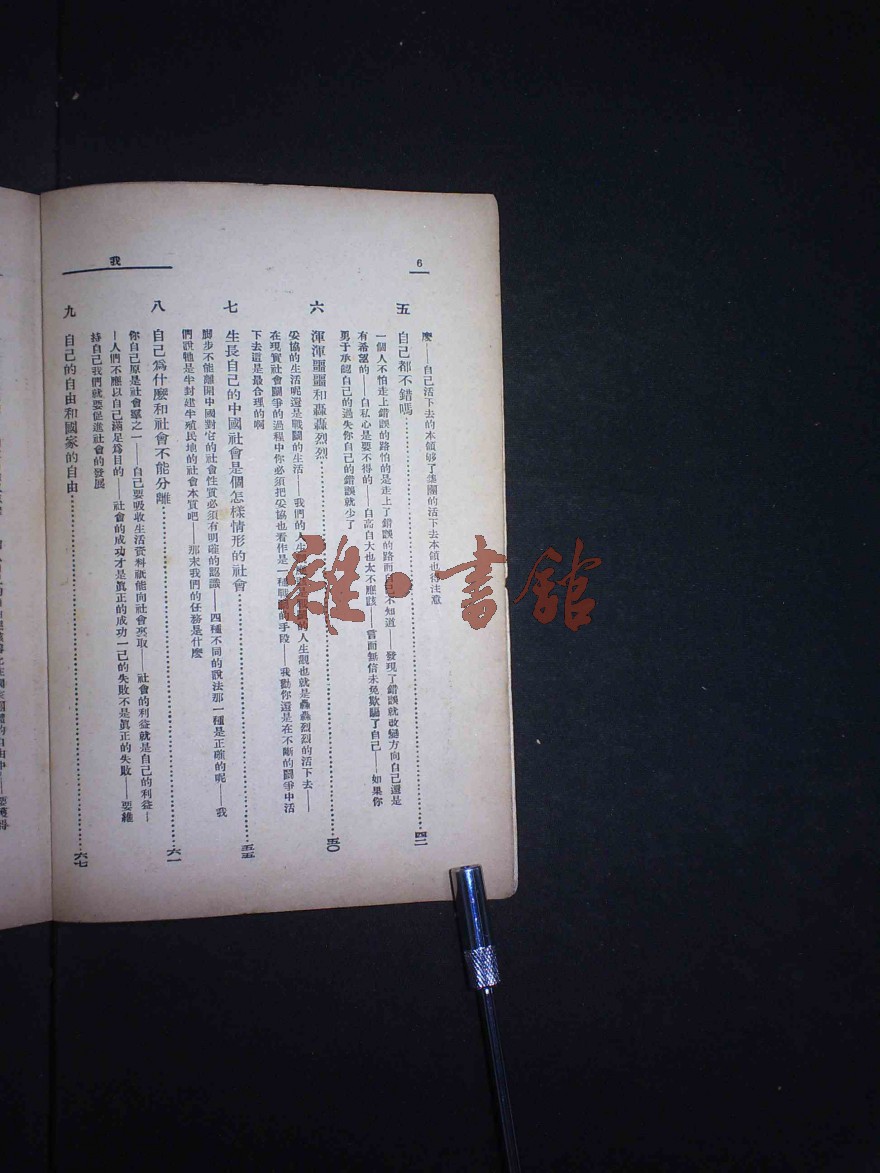 6
我
麽——自己活下去的本領够了集團的活下去本領也得注意
五 自己都不錯嗎……四二
一個人不怕走上錯誤的路怕的是走上了錯誤的路而自己不知道——發現了錯誤就改變方向自己還是
有希望的——自私心是要不得的——自高自大也太不應該——言而無信未免欺騙了自己——如果你
勇于承認自己的過失你自己的錯誤就少了
六 渾渾噩噩和轟轟烈烈……五〇
妥協的生活呢還是戰鬭的生活——我們的人生的人生觀也就是轟轟烈烈的活下去——
在現實社會鬭爭的過程中你必須把妥協也看作是一種戰鬭的手段——我勸你還是在不斷的鬭爭中活
下去這是最合理的啊
七 生長自己的中國社會是個怎樣情形的社會……五五
脚步不能離開中國對它的社會性質必須有明確的認識——四種不同的說法那一種是正確的呢——我
們說牠是半封建半殖民地的社會本質吧——那末我們的任務是什麽
八 自己爲什麽和社會不能分離……六一
你自己原是社會羣之一——自己要吸收生活資料祇能向社會索取——社會的利益就是自己的利益—
—人們不應以自己滿足爲目的——社會的成功才是眞正的成功一己的失敗不是眞正的失敗——要維
持自己我們就要促進社會的發展
九 自己的自由和國家的自由……六七
雜·書館